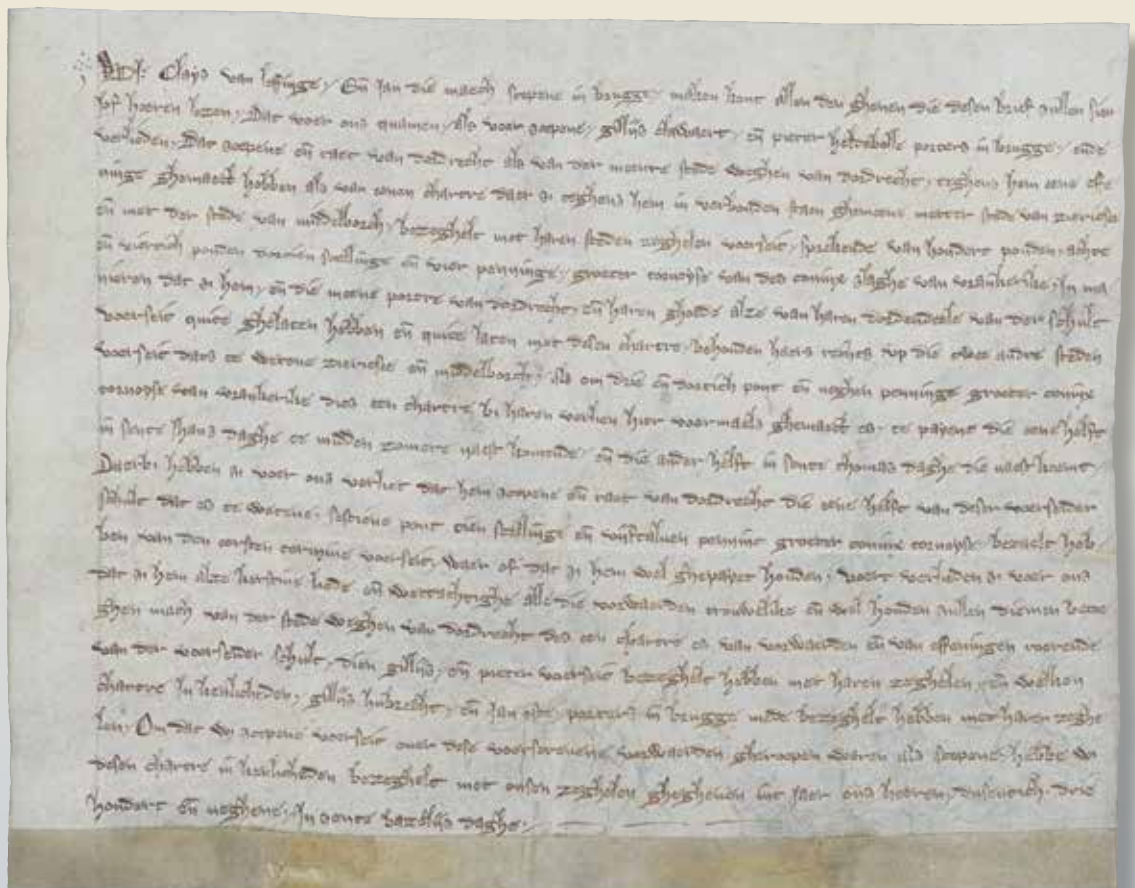 Wi Clays van leffinge / Eñ Jan die maech scepene in brugge / maken kont allen den ghenen die desen brief sullen sien
hof hoeren lezen / Dat voer ons quamen / als voer scepene / gillijs clawaert / eñ pieter heldebolle porters in brugge / ende
verlieden / Dat scepene eñ raet van dordrecht als van der meenre stede weghen van dordrecht / ieghens hem eene effe
ninge ghemaect hebben als van eenen chartre daer si ieghens hem in verbonden staen ghemeene metter stede van zierixse
eñ met der stede van middelborch / bezeghelt met haren steden zeghelen voerseit / sprekende van hondert ponden achte
eñ viertich ponden dertien scellinge eñ vier penninge / groeter tornoyse van des coninx slaghe van vrankerike / In ma
nieren dat si hem / eñ die meene porters van dordrecht / eñ haren ghoede alze van haren derdendeele van der schult
voerseit quite ghelaten hebben eñ quite laten met desen chartre / behouden haers rechts up die twee andre steden
voerseit dats te wetene zierixse eñ middelborch / als om drie eñ dertich pont eñ neghen penninge groeter coninx
tornoyse van vrankerike dies een chartre bi haren verlien hier voermaels ghemaect es / te payene die eene helft
in sente Jhans daghe te midden zomere naest komende / eñ die ander helft in sente thomas daghe die naest koemt /
Daerbi hebben si voer ons verliet dat hem scepene eñ raet van dordrecht die eene helft van deser voerseider
schult dat es te wetene / sestiene pont tien scellinge eñ vijftalven pennинc groeter coninx tornoyse / betaelt heb
ben van den eersten termine voerseit / waer of dat si hem wel ghepayet houden / voert verlieden si voer ons
dat si hem alze kerstine liede eñ wettachtighe alle die vorwaerden trouwelike eñ wel houden sullen diemen betoe
ghen mach van der stede weghen van dordrecht des een chartre es van vorwaerden eñ van effeningen roerende
van der voerseider schult / dien gillijs / eñ pieter voerseit bezeghelt hebben met haren zeghelen / eñ welken
chartre In kenlicheden / gillijs hubrecht / eñ Jan porters in brugge mede bezeghelt hebben met haren zeghe
len / Om dat wi scepene voerseit over dese voerscrevene vorwaerden gheroepen waren als scepene / hebbe wi
desen chartre in kenlicheden bezeghelt met onsen zeghelen ghegheven int Jaer ons heeren / dusentich drie
hondert eñ neghene / In sente daghe /